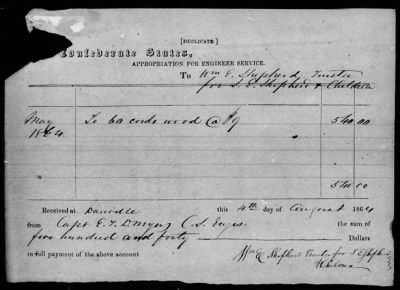 [DUPLICATE]
Confederate States,
APPROPRIATION FOR ENGINEER SERVICE.
To Wm E. Shepherd, Trustee
for S. E. Shepherd & Children
May
1864. To 60 cords wood @ $9 540.00
540.00
Received at Danville this 4th day of August 1864
from Capt E. T. D. Myers C. S. Engrs. the sum of
five hundred and forty Dollars
in full payment of the above account
Wm E Shepherd Trustee for S E Shepherd
& Children